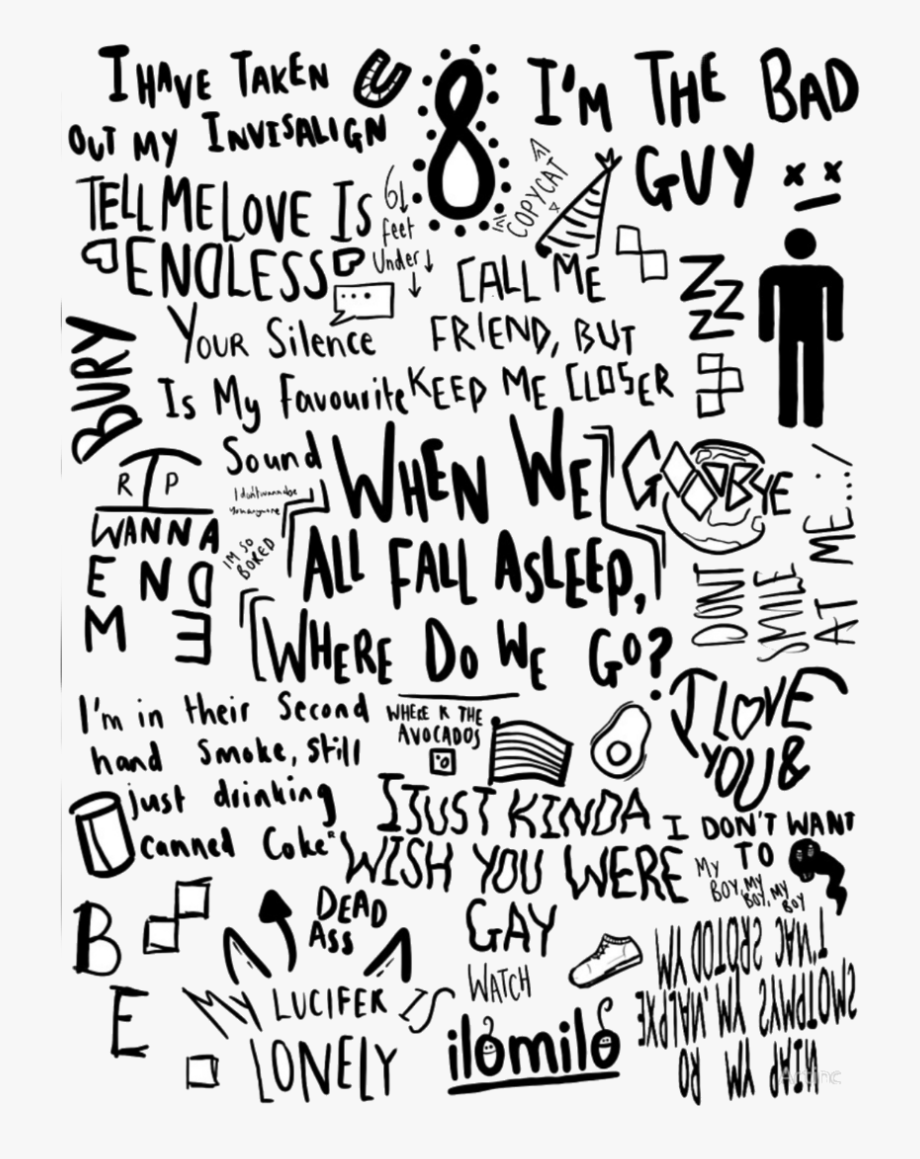 I HAVE TAKEN
OUT MY INVISALIGN
8
I'M THE BAD
GUY
TELL ME LOVE IS
ENDLESS
6
feet
Under
COPYCAT
CALL ME
FRIEND, BUT
KEEP ME CLOSER
ZZZ
YOUR Silence
Is My Favourite
Sound
BURY
R P
I don't wanna be
you anymore
I'M SO
BORED
WHEN WE
ALL FALL ASLEEP,
WHERE DO WE GO?
GOODBYE
DONT
SMILE
AT ME...:/
WANNA
END
ME
I'm in their Second
hand Smoke, still
just drinking
canned Coke"
WHERE R THE
AVOCADOS
I LOVE
YOU &
I JUST KINDA
WISH YOU WERE
GAY
I DON'T WANT
TO
B
E
MY
BOY, MY
BOY, MY
BOY
DEAD
ASS
MY LUCIFER IS
LONELY
WATCH
ilomilo
MY DOTODRS CAN'T
EXPLAIN MY SYMPTOMS
OR MY PAIN